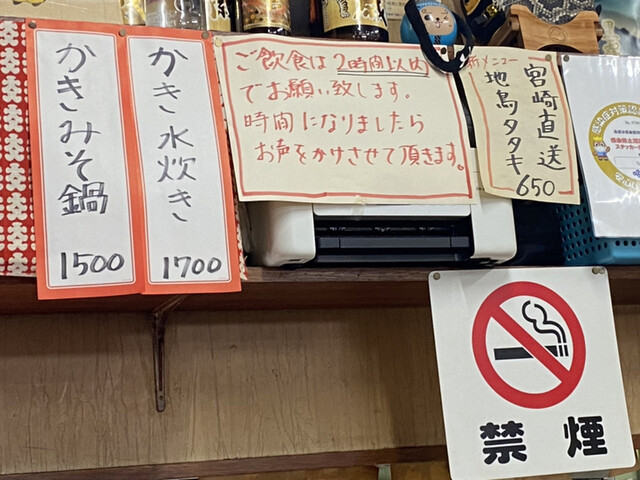 かきみそ鍋
1500
かき水炊き
1700
ご飲食は2時間以内
でお願い致します。
時間になりましたら
お声をかけさせて頂きます。
新メニュー
宮崎直送
地鳥タタキ
650
禁煙